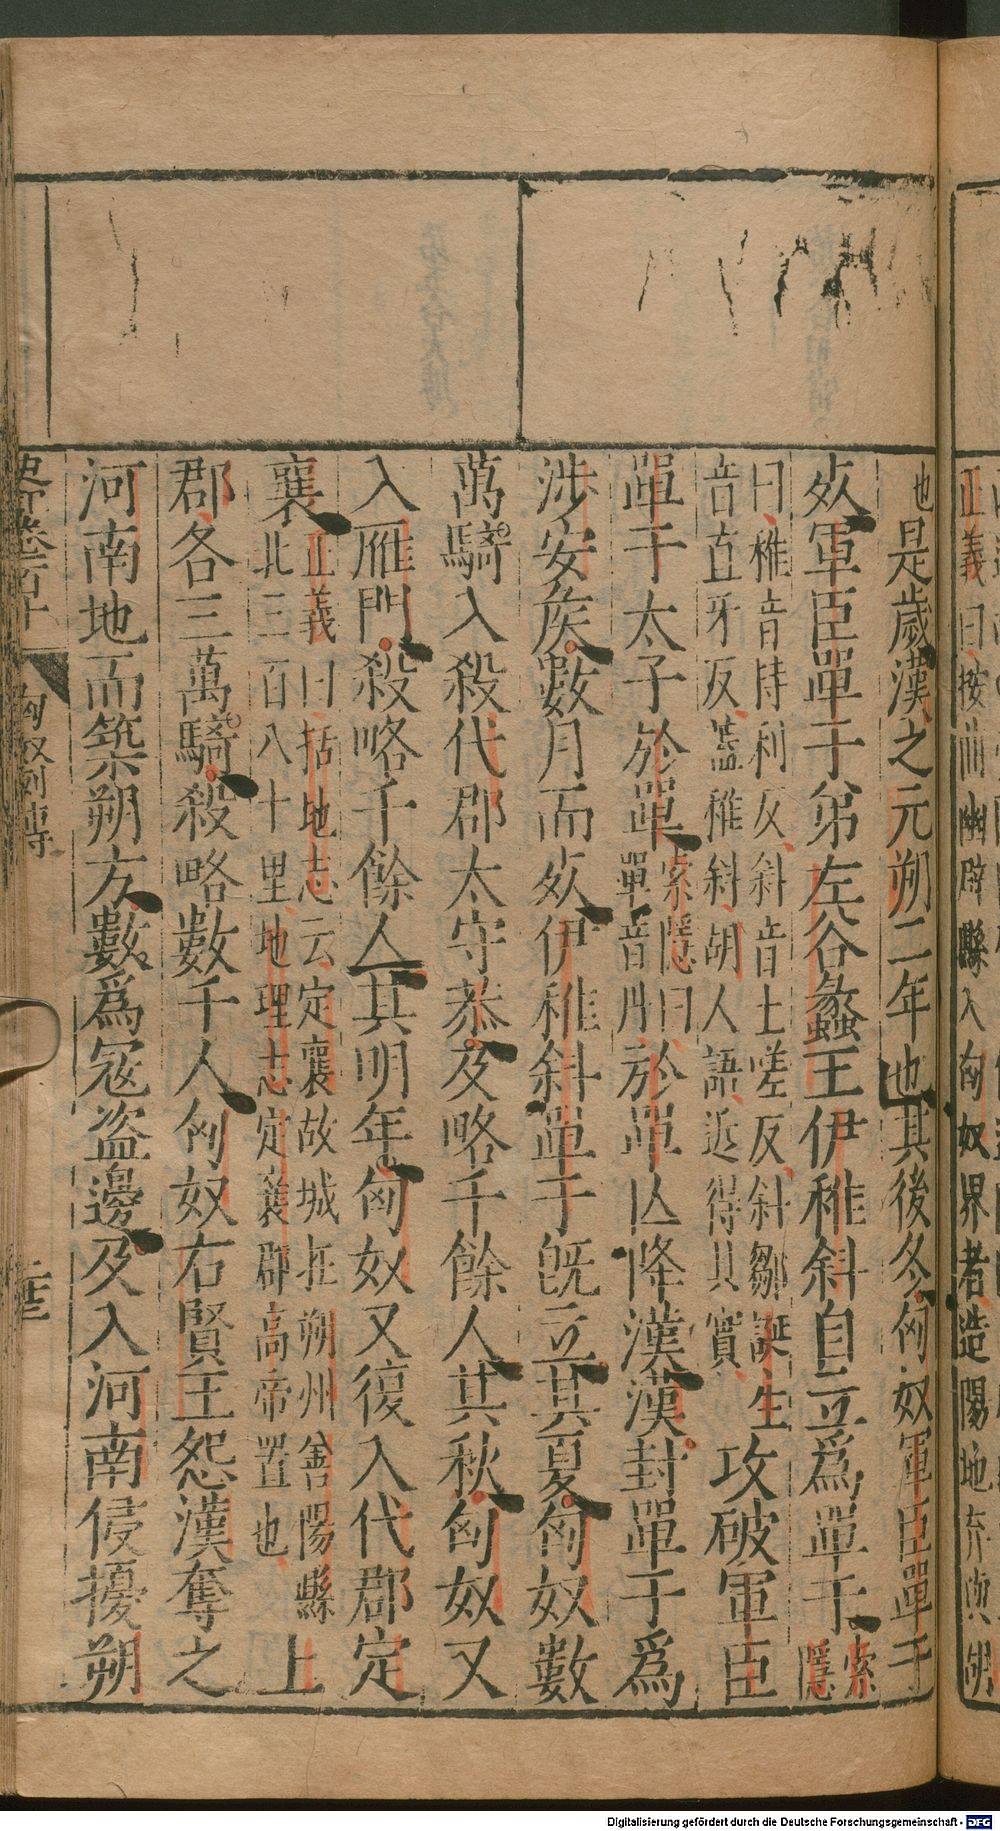 正義曰按
縣入匈奴界者造陽地
也是歲漢之元朔二年也其後冬匈奴軍臣單于
死軍臣單于弟左谷蠡王伊稚斜自立爲單于索隱
曰稚音持利反斜音士嗟反斜鄒誕生
音直牙反蓋稚斜胡人語近得其實攻破軍臣
單于太子於單索隱曰於
單音丹於單亾降漢漢封單于爲
涉安矦數月而死伊稚斜單于旣立其夏匈奴數
萬騎入殺代郡太守恭及略千餘人其秋匈奴又
入雁門殺略千餘人其明年匈奴又復入代郡定
襄正義曰括地志云定襄故城在朔州善陽縣
北三百八十里地理志定襄郡高帝置也上
郡各三萬騎殺略數千人匈奴右賢王怨漢奪之
河南地而築朔方數爲寇盜邊及入河南侵擾朔
史記卷百十 匈奴列傳
Digitalisierung gefördert durch die Deutsche Forschungsgemeinschaft - DFG